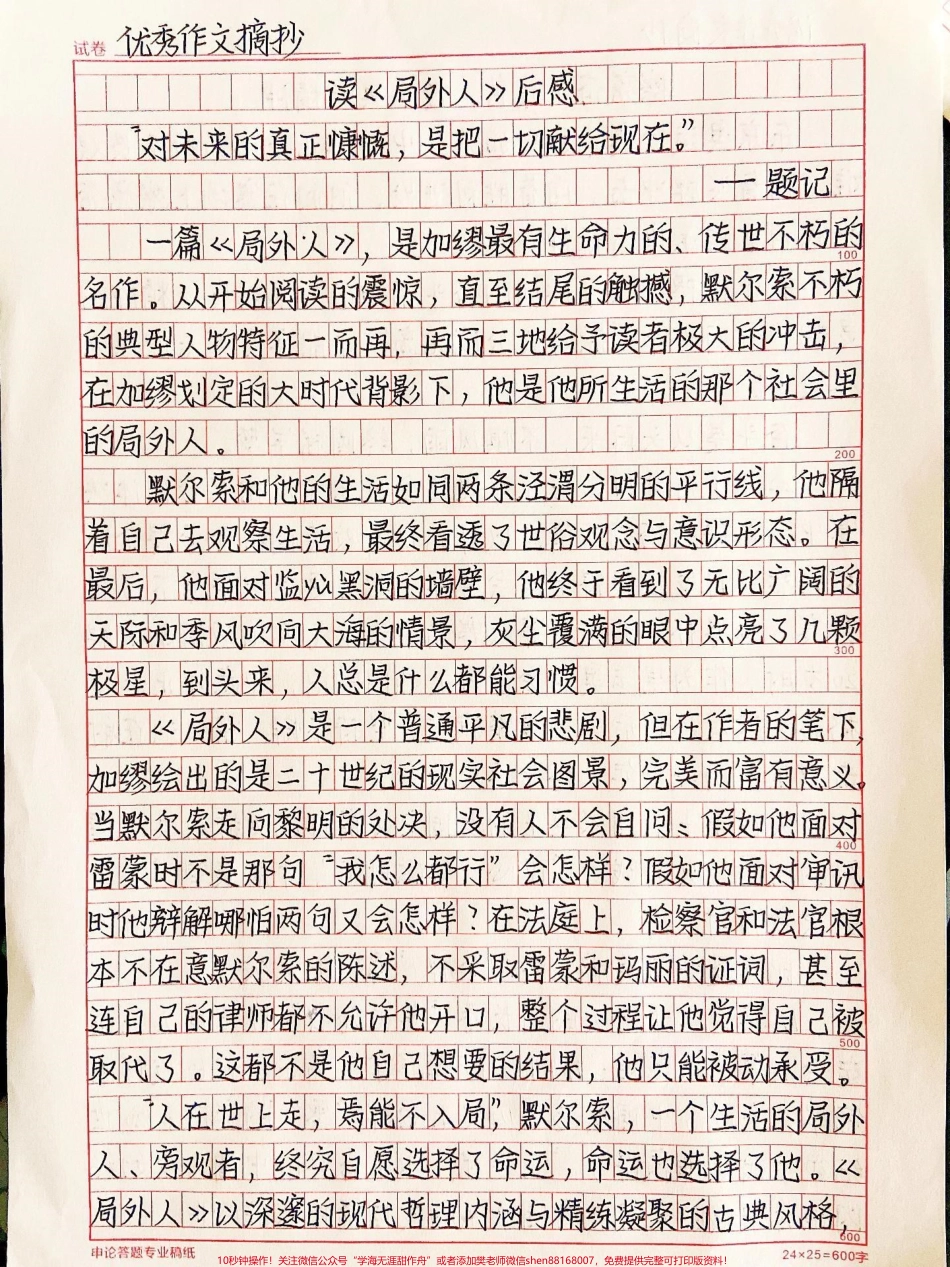 试卷 优秀作文摘抄
读《局外人》后感
“对未来的真正慷慨，是把一切献给现在。”
——题记
一篇《局外人》，是加缪最有生命力的、传世不朽的
100
名作。从开始阅读的震惊，直至结尾的触撼，默尔索不朽
的典型人物特征一而再，再而三地给予读者极大的冲击，
在加缪划定的大时代背影下，他是他所生活的那个社会里
的局外人。
200
默尔索和他的生活如同两条泾渭分明的平行线，他隔
着自己去观察生活，最终看透了世俗观念与意识形态。在
最后，他面对监狱黑洞的墙壁，他终于看到了无比广阔的
天际和季风吹向大海的情景，灰尘覆满的眼中点亮了几颗
300
极星，到头来，人总是什么都能习惯。
《局外人》是一个普通平凡的悲剧，但在作者的笔下，
加缪绘出的是二十世纪的现实社会图景，完美而富有意义。
当默尔索走向黎明的处决，没有人不会自问：假如他面对
400
雷蒙时不是那句“我怎么都行”会怎样？假如他面对审讯
时他辩解哪怕两句又会怎样？在法庭上，检察官和法官根
本不在意默尔索的陈述，不采取雷蒙和玛丽的证词，甚至
连自己的律师都不允许他开口，整个过程让他觉得自己被
500
取代了。这都不是他自己想要的结果，他只能被动承受。
“人在世上走，焉能不入局”，默尔索，一个生活的局外
人、旁观者，终究自愿选择了命运，命运也选择了他。《
局外人》以深邃的现代哲理内涵与精练凝聚的古典风格，
600
申论答题专业稿纸
24×25=600字
10秒钟操作！关注微信公众号“学海无涯甜作舟”或者添加樊老师微信shen88168007，免费提供完整可打印版资料！